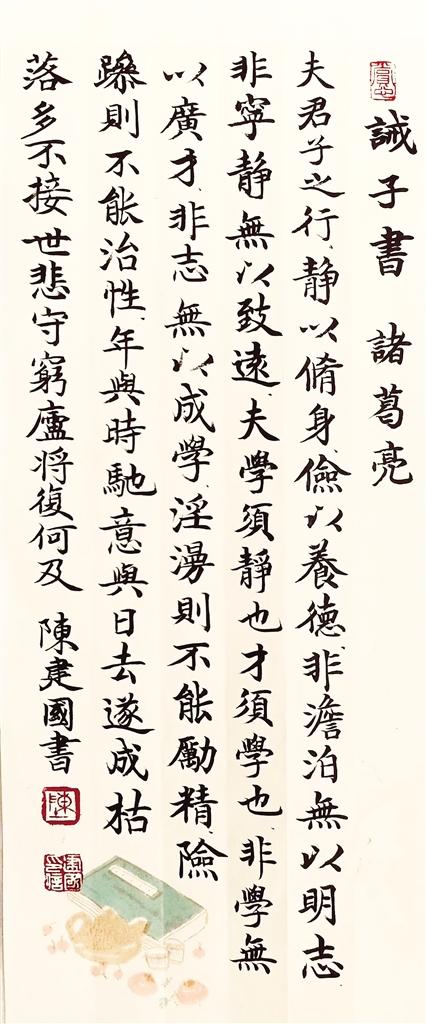 誡子書 諸葛亮
夫君子之行静以脩身儉以養德非澹泊無以明志
非寧静無以致遠夫學須静也才須學也非學無
以廣才非志無以成學淫漫則不能勵精險
躁則不能治性年與時馳意與日去遂成枯
落多不接世悲守窮廬将復何及
陳建國書
陳